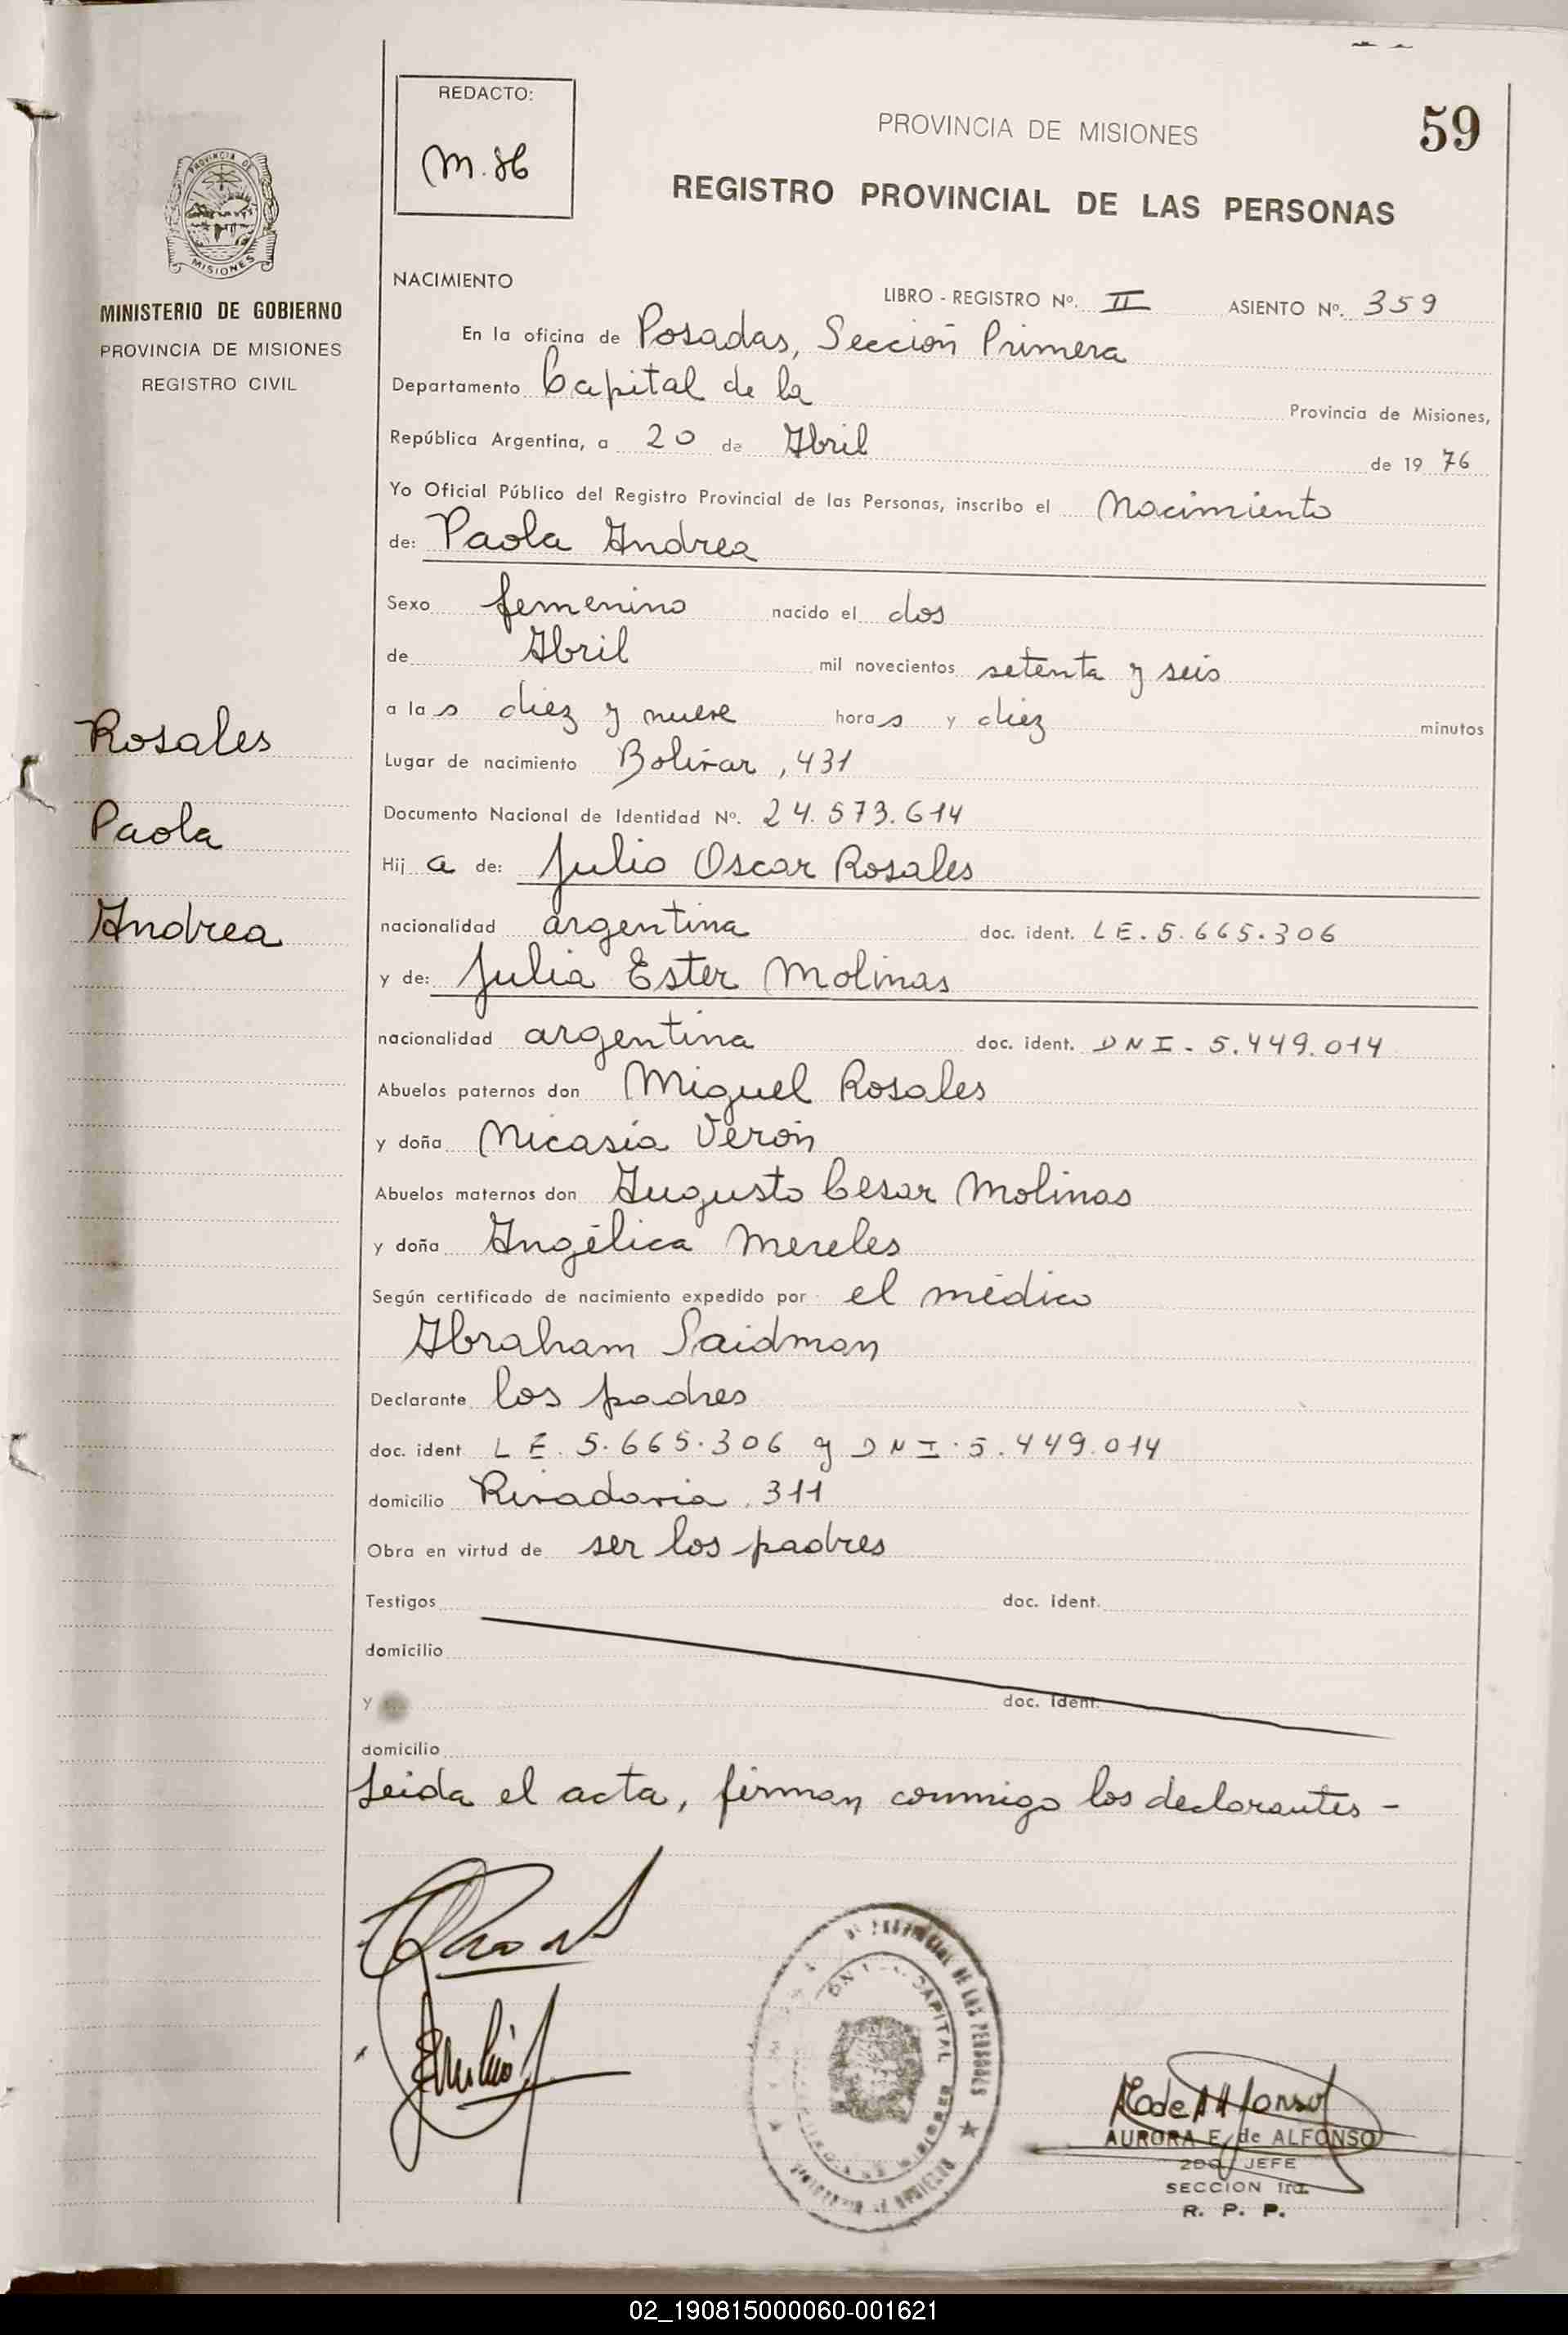 59
REDACTO:
M. 86
PROVINCIA DE MISIONES
REGISTRO PROVINCIAL DE LAS PERSONAS
PROVINCIA DE
MISIONES
MINISTERIO DE GOBIERNO
PROVINCIA DE MISIONES
REGISTRO CIVIL
Rosales
Paola
Andrea
NACIMIENTO
LIBRO - REGISTRO Nº. II ASIENTO Nº. 359
En la oficina de Posadas, Sección Primera
Departamento Capital de la Provincia de Misiones,
República Argentina, a 20 de Abril de 19 76
Yo Oficial Público del Registro Provincial de las Personas, inscribo el Nacimiento
de: Paola Andrea
Sexo femenino nacido el dos
de Abril mil novecientos setenta y seis
a las diez y nueve horas y diez minutos
Lugar de nacimiento Bolívar, 431
Documento Nacional de Identidad Nº. 24.573.614
Hij a de: Julio Oscar Rosales
nacionalidad argentina doc. ident. LE. 5.665.306
y de: Julia Ester Molinas
nacionalidad argentina doc. ident. DNI - 5.449.014
Abuelos paternos don Miguel Rosales
y doña Nicasia Verón
Abuelos maternos don Augusto Cesar Molinas
y doña Angélica Mereles
Según certificado de nacimiento expedido por el médico
Abraham Saidman
Declarante los padres
doc. ident LE. 5.665.306 y DNI. 5.449.014
domicilio Rivadavia, 311
Obra en virtud de ser los padres
Testigos doc. ident.
domicilio
y doc. ident.
domicilio
Leida el acta, firman conmigo los declarantes -
PROVINCIAL DE LAS PERSONAS
CAPITAL
AURORA E. de ALFONSO
2DO. JEFE
SECCION 1ra.
R. P. P.
02_190815000060-001621